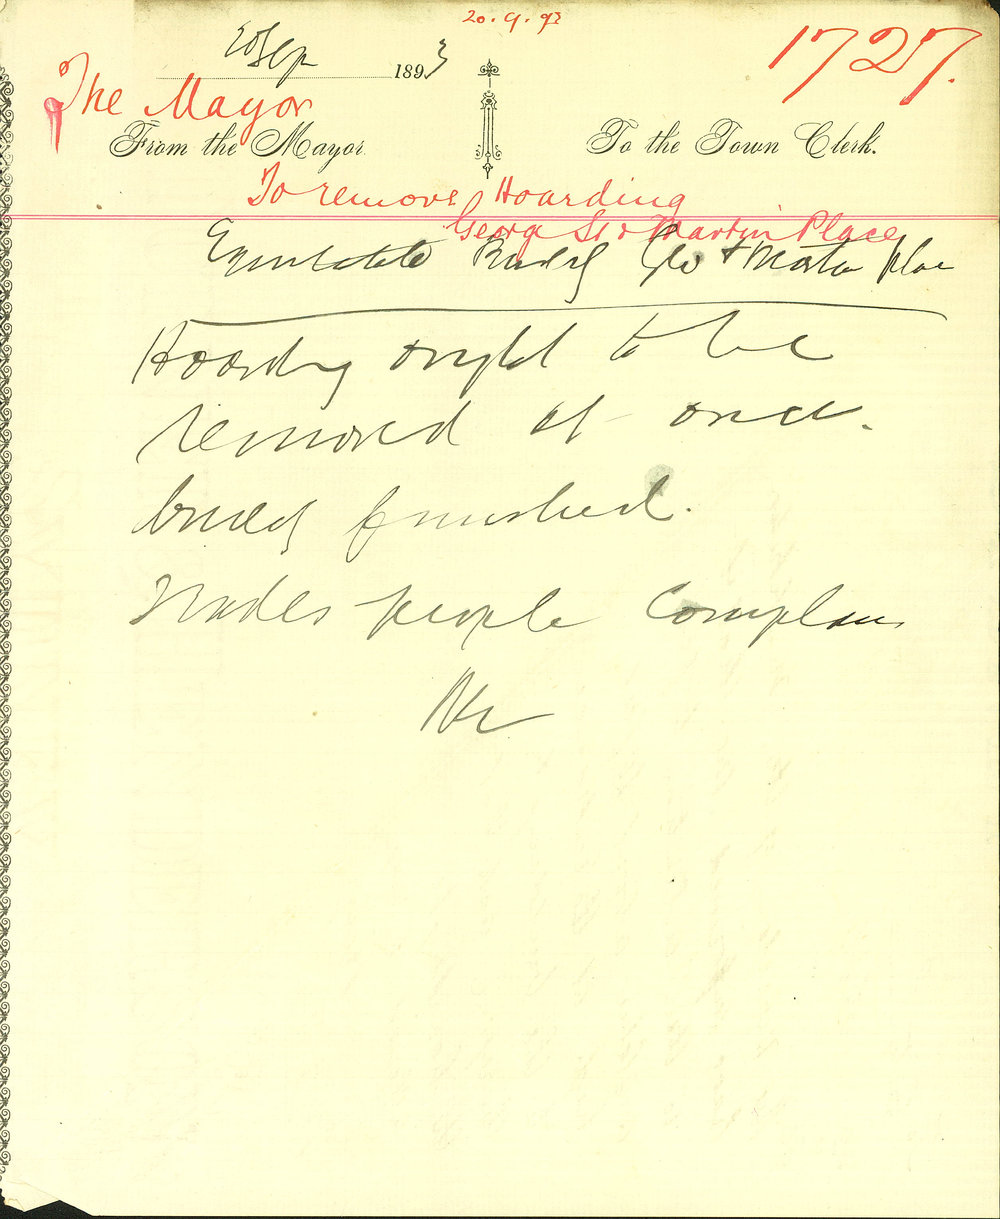 20.9.93
20 Sep 1893
1727.
The Mayor
From the Mayor. To the Town Clerk.
To remove Hoarding
George St & Martin Place
Equitable Buildg Geo & Martin place
Hoarding ought to be
removed at once.
buildg finished.
Trades people complain